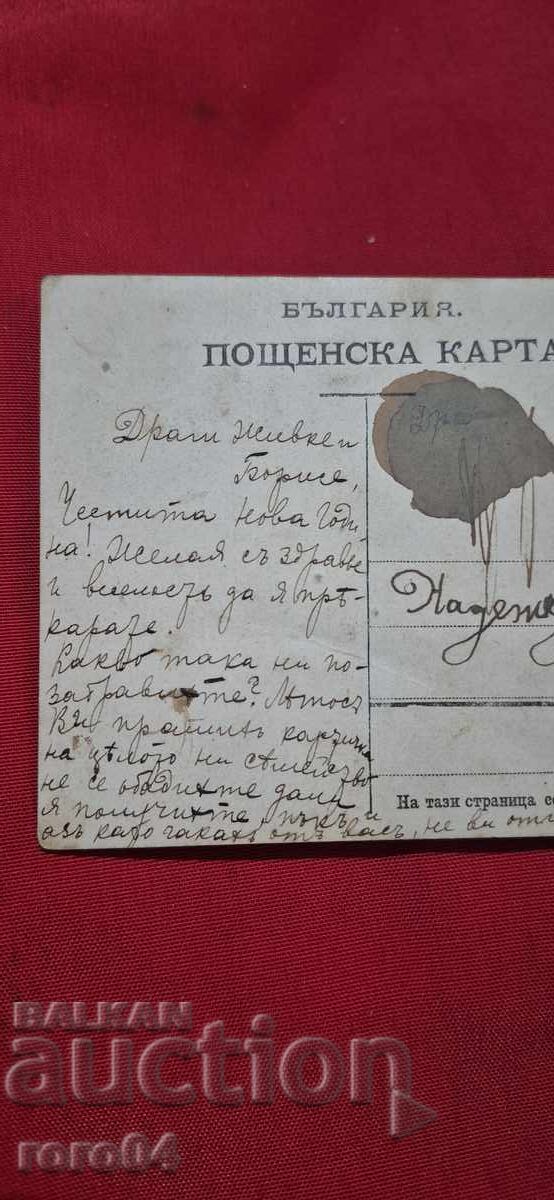 БЪЛГАРИЯ.
ПОЩЕНСКА КАРТА
Дра
Драги Живке и
Борисе,
Честита Нова Годи-
на! Желая съ здравье
и веселость да я прѣ-
карате.
Какво така ни по-
забравихте? Лѣтосъ
Ви пратихъ картичка
на цѣлото ни сѣмейство
не се обадихте дали
я получихте, пъкъ и
азъ като чакахъ отъ васъ, не ви
На тази страница се
BALKAN
auction
roro04